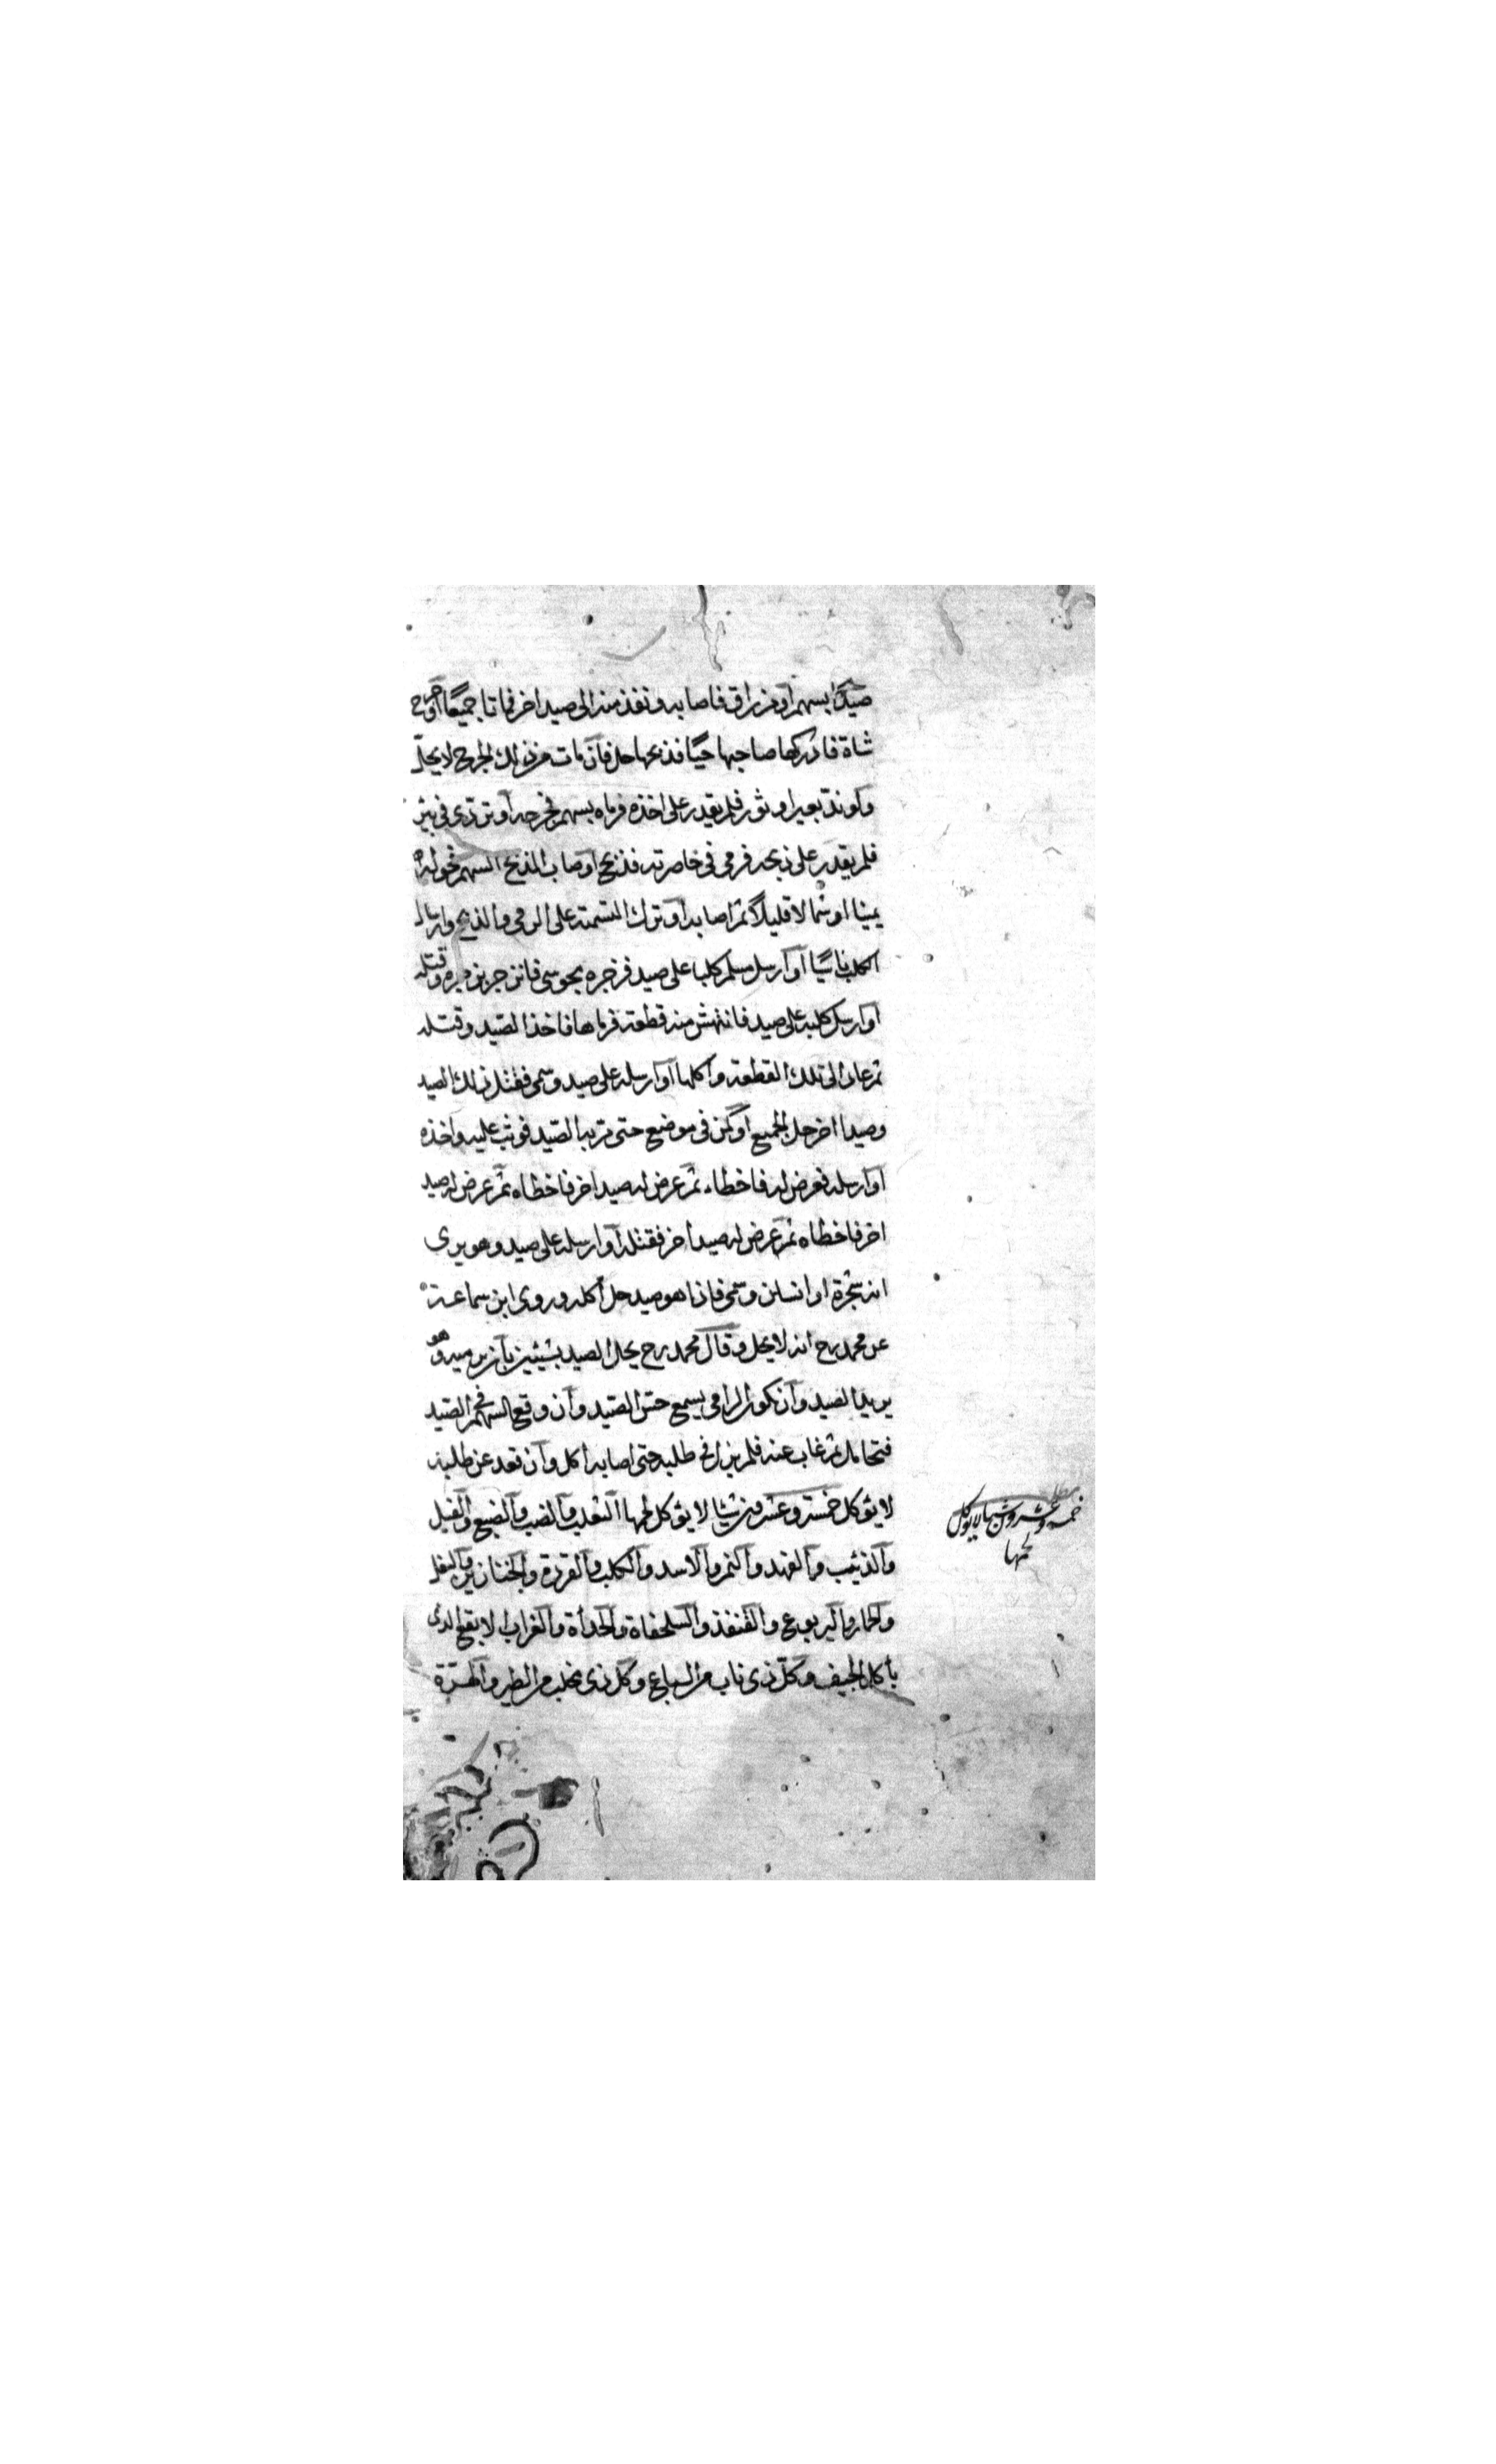 صيدًا بسهم او مزراق فاصابه ونفذ منه الى صيد اخر فماتا جميعًا او جرح
شاة فادركها صاحبها حيًا فذبحها حل فان مات من ذلك الجرح لا يحل
ولو ند بعير او ثور فلم يقدر على اخذه فرماه بسهم فجرحه او تردى فى بئر
فلم يقدر على ذبحه فرمى فى خاصرته فذبح او صاب المذبح السهم فحوله
يمينا او شمالا قليلًا ثم اصابه او ترك التسمية على الرمى والذبح وارسال
الكلب ناسيًا او ارسل مسلم كلبا على صيد فزجره مجوسى فانزجر بزجره وقتله
او ارسل كلبه على صيد فانتهش منه قطعة فرماها فاخذ الصيد وقتله
ثم عاد الى تلك القطعة واكلها او ارسله على صيد وسمى فقتل ذلك الصيد
وصيدا اخر حل الجميع او كمن فى موضع حتى مر به الصيد فوثب عليه واخذه
او ارسله فعرض له فاخطاء ثم عرض له صيد اخر فاخطاه ثم عرض له صيد
اخر فاخطاه ثم عرض له صيد اخر فقتله او ارسله على صيد وهو يرى
انه شجرة او انسان وسمى فاذا هو صيد حل اكله وروى ابن سماعة
عن محمد رح انه لا يحل وقال محمد رح يحل الصيد بشيئين بان يرميه وهو
يريد الصيد وان يكون الرامى يسمع حس الصيد وان وقع السهم فى الصيد
فتحامل ثم غاب عنه فلم يزل فى طلبه حتى اصابه اكل وان قعد عن طلبه
لا يؤكل خمسة وعشرين شيئا لا يؤكل لحمها الثعلب والضب والضبع والفيل
والذئب والفهد والنمر والاسد والكلب والقردة والخنازير والبغل
والحمار واليربوع والقنفذ والسلحفاة والحدأة والغراب الابقع الذى
يأكل الجيف وكل ذى ناب من السباع وكل ذى مخلب من الطير والهرة
مطلب
خمسة وعشرون شيئا لا يؤكل
لحمها